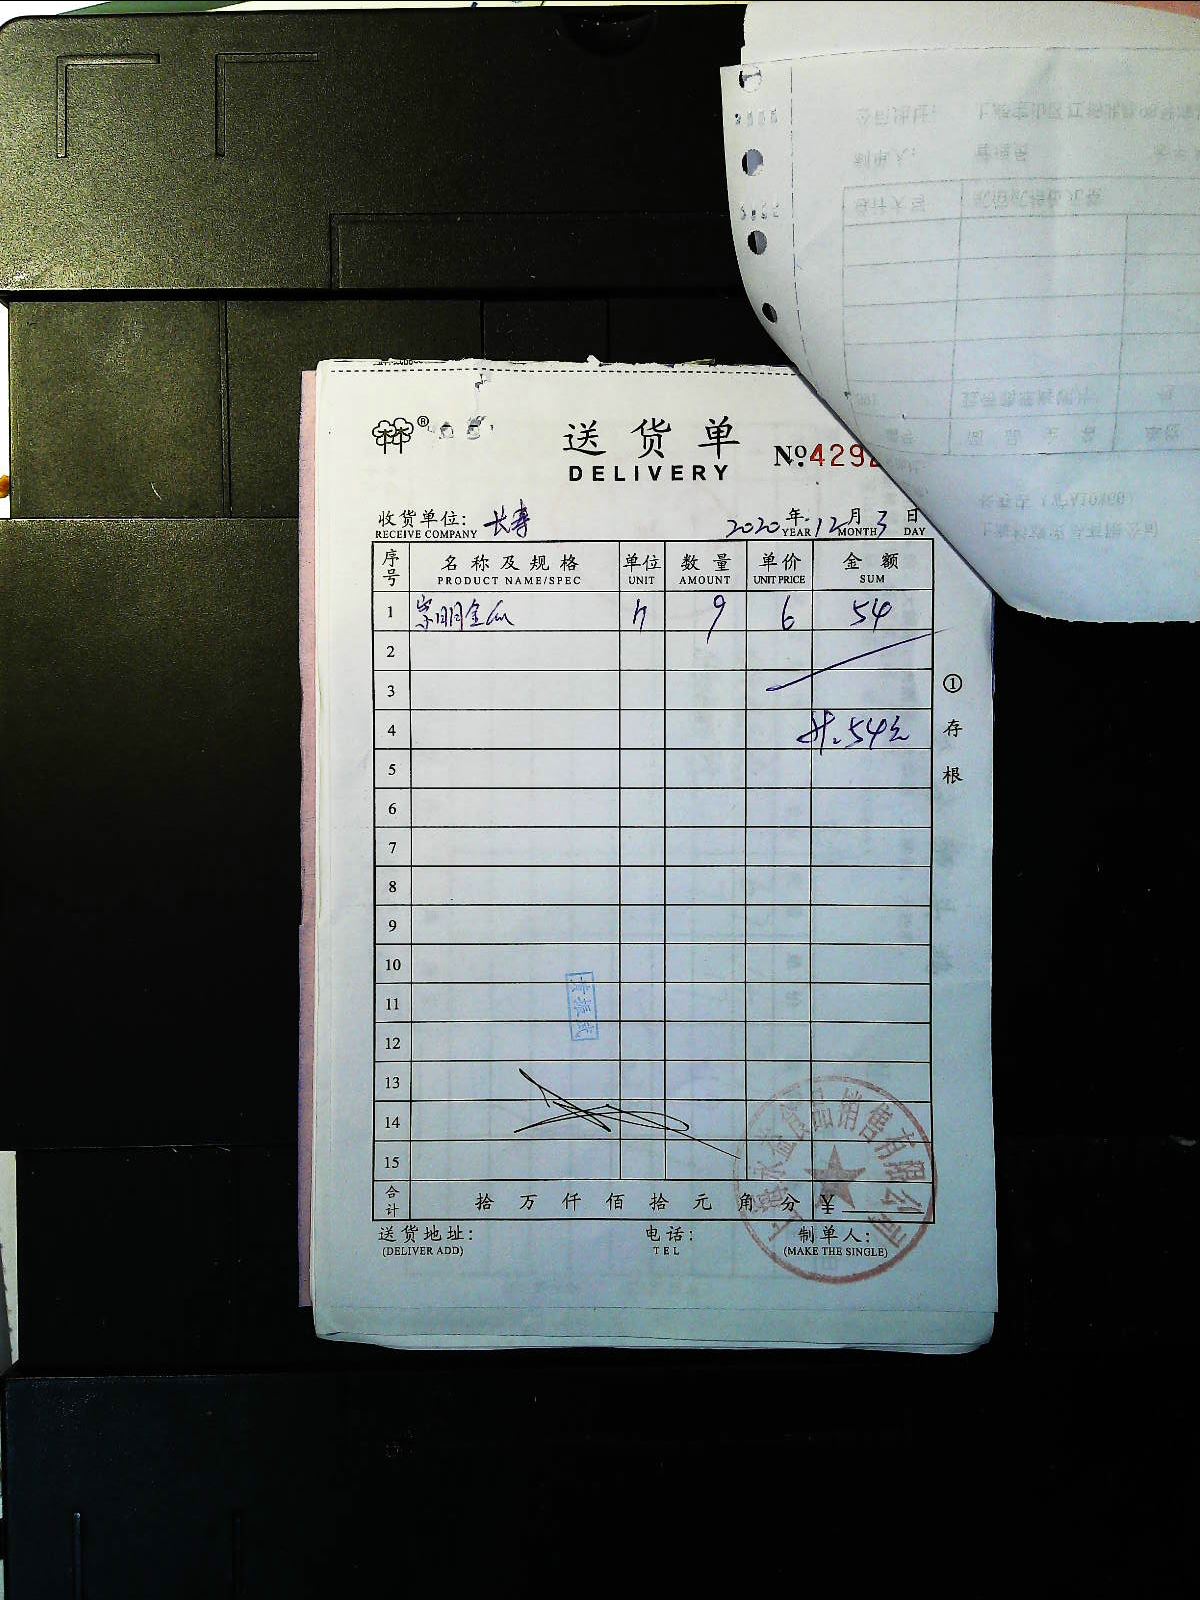 送货单
DELIVERY
№:4292
收货单位: 长寿
RECEIVE COMPANY
2020年 12月 3日
YEAR MONTH DAY
序号 名称及规格 单位 数量 单价 金额
PRODUCT NAME/SPEC UNIT AMOUNT UNIT PRICE SUM
1 崇明金瓜 9 6 54
2
3
4 共.54元
5
6
7
8
9
10
11
12
13
14
15
合计 拾 万 仟 佰 拾 元 角 分 ¥
① 存根
食品销售有限公司
送货地址: 电话: 制单人:
(DELIVER ADD) TEL (MAKE THE SINGLE)